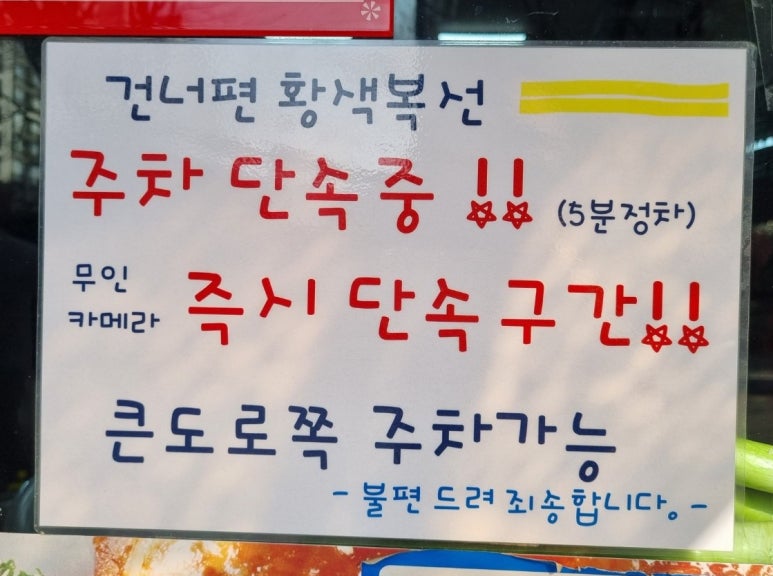 건너편 황색복선
주차 단속중 !! (5분정차)
무인
카메라 즉시 단속구간!!
큰도로쪽 주차가능
- 불편 드려 죄송합니다. -